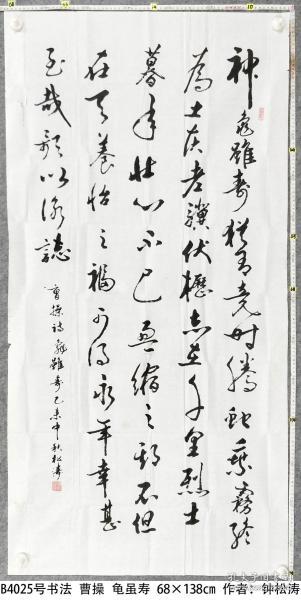 神龜雖寿猶有竟时騰蛇乘霧終
為土灰老驥伏櫪志在千里烈士
暮年壮心不已盈縮之期不但
在天養怡之福可得永年幸甚
至哉歌以詠誌
曹操诗龜雖寿乙未中秋松涛
B4025号书法 曹操 龟虽寿 68×138cm 作者：钟松涛